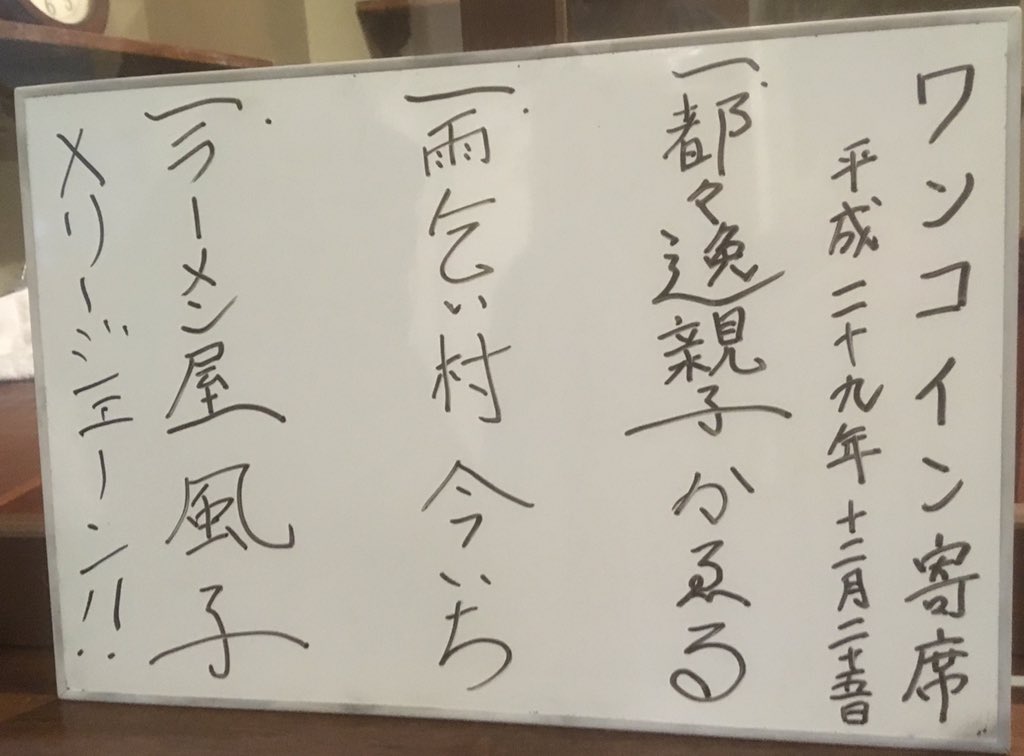 ワンコイン寄席
平成二十九年十二月二十五日
一.都々逸親子 かゑる
一.雨乞い村 今いち
一.ラーメン屋 風子
メリージェーン!!